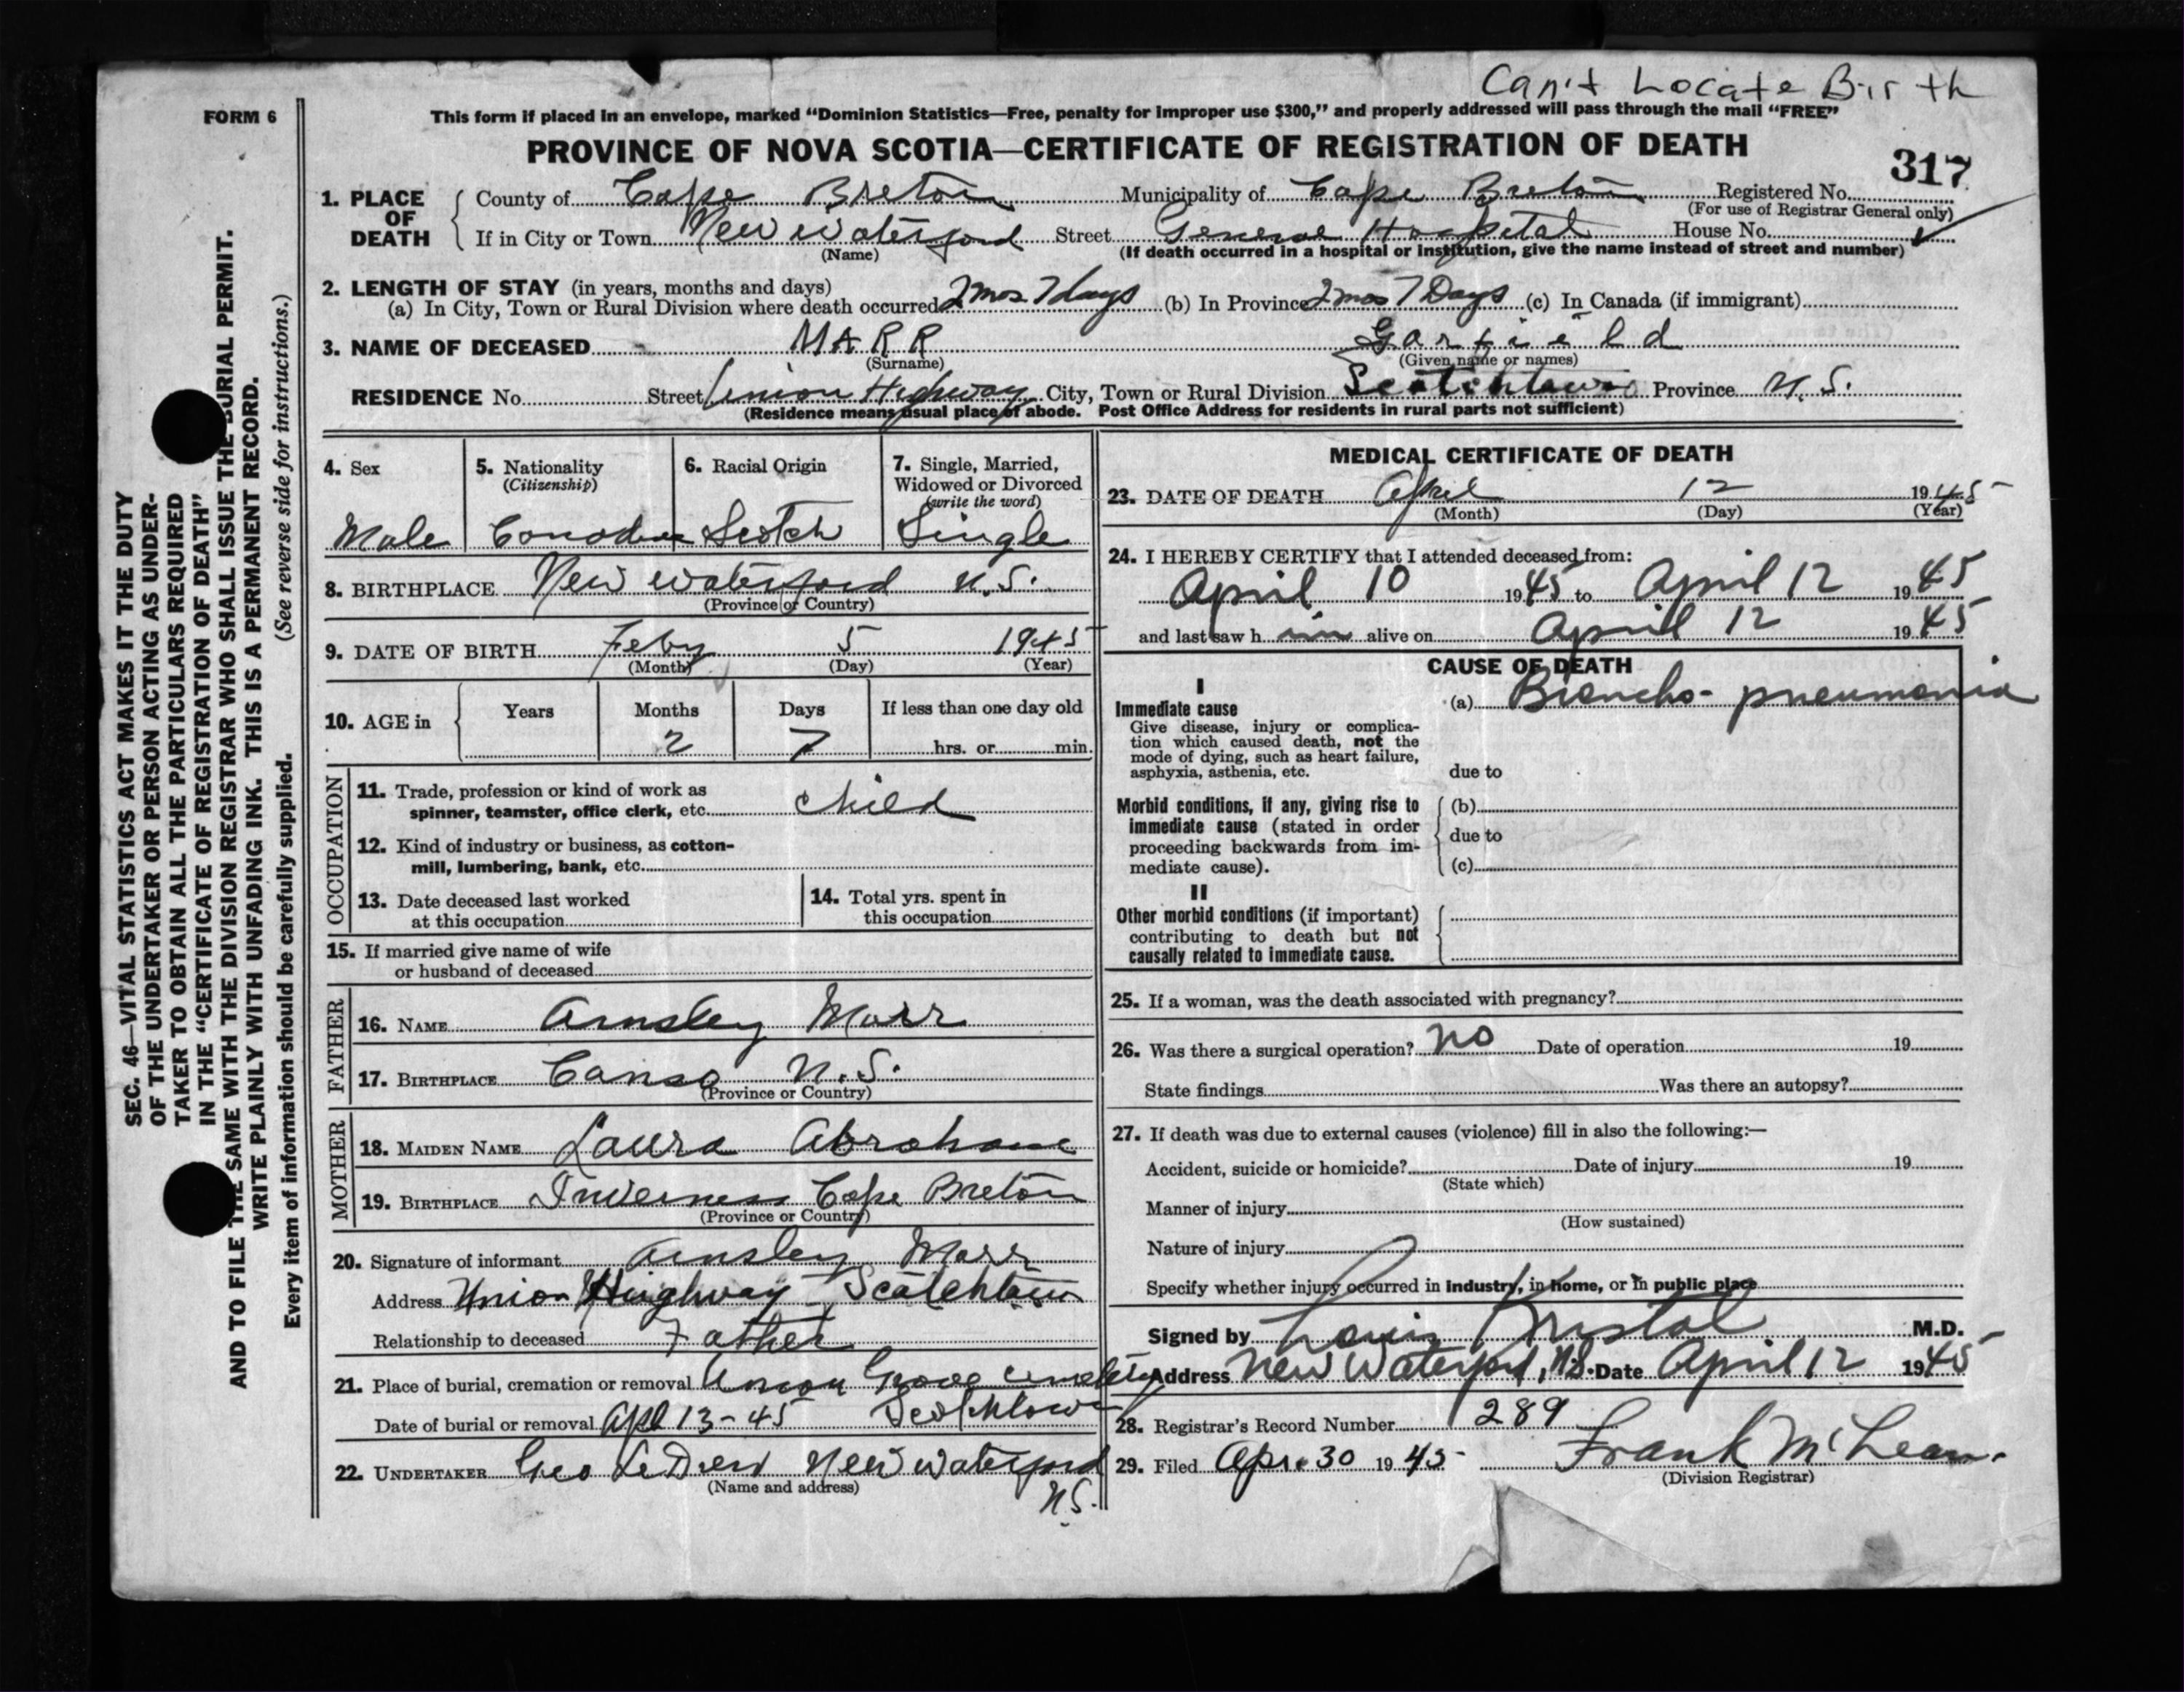 Can't Locate Birth
FORM 6
This form if placed in an envelope, marked “Dominion Statistics—Free, penalty for improper use $300,” and properly addressed will pass through the mail “FREE”
PROVINCE OF NOVA SCOTIA—CERTIFICATE OF REGISTRATION OF DEATH
317
1. PLACE OF DEATH
County of Cape Breton Municipality of Cape Breton Registered No.
(For use of Registrar General only)
If in City or Town New Waterford Street General Hospital House No.
(Name) (If death occurred in a hospital or institution, give the name instead of street and number)
2. LENGTH OF STAY (in years, months and days)
(a) In City, Town or Rural Division where death occurred 2 mos 7 days (b) In Province 2 mos 7 Days (c) In Canada (if immigrant)
3. NAME OF DECEASED MARR Garfield
(Surname) (Given name or names)
RESIDENCE No. Street Union Highway City, Town or Rural Division Scotchtown Province N.S.
(Residence means usual place of abode. Post Office Address for residents in rural parts not sufficient)
4. Sex
Male
5. Nationality
(Citizenship)
Canadian
6. Racial Origin
Scotch
7. Single, Married,
Widowed or Divorced
(write the word)
Single
8. BIRTHPLACE New Waterford N.S.
(Province or Country)
9. DATE OF BIRTH Feby 5 1945
(Month) (Day) (Year)
10. AGE in Years Months Days If less than one day old
2 7 hrs. or min.
OCCUPATION
11. Trade, profession or kind of work as
spinner, teamster, office clerk, etc. child
12. Kind of industry or business, as cotton-
mill, lumbering, bank, etc.
13. Date deceased last worked
at this occupation
14. Total yrs. spent in
this occupation
15. If married give name of wife
or husband of deceased
FATHER
16. NAME Ainsley Marr
17. BIRTHPLACE Canso N.S.
(Province or Country)
MOTHER
18. MAIDEN NAME Laura Abraham
19. BIRTHPLACE Inverness Cape Breton
(Province or Country)
20. Signature of informant Ainsley Marr
Address Union Hinghway Scotchtown
Relationship to deceased Father
21. Place of burial, cremation or removal Union Grove Cemetery
Date of burial or removal Apl 13-45 Scotchtown
22. UNDERTAKER Geo LeDrew New Waterford
(Name and address)
N.S.
MEDICAL CERTIFICATE OF DEATH
23. DATE OF DEATH April 12 1945
(Month) (Day) (Year)
24. I HEREBY CERTIFY that I attended deceased from:
April 10 1945 to April 12 1945
and last saw him alive on April 12 1945
CAUSE OF DEATH
I
Immediate cause
Give disease, injury or complica-
tion which caused death, not the
mode of dying, such as heart failure,
asphyxia, asthenia, etc.
(a) Broncho-pneumonia
due to
Morbid conditions, if any, giving rise to
immediate cause (stated in order
proceeding backwards from im-
mediate cause).
(b)
due to
(c)
II
Other morbid conditions (if important)
contributing to death but not
causally related to immediate cause.
25. If a woman, was the death associated with pregnancy?
26. Was there a surgical operation? no Date of operation 19
State findings Was there an autopsy?
27. If death was due to external causes (violence) fill in also the following:—
Accident, suicide or homicide? Date of injury 19
(State which)
Manner of injury
(How sustained)
Nature of injury
Specify whether injury occurred in industry, in home, or in public place
Signed by Louis Kristal M.D.
Address New Waterford, N.S. Date April 12 1945
28. Registrar's Record Number 289
29. Filed Apr. 30 1945 Frank McLean.
(Division Registrar)
SEC. 46—VITAL STATISTICS ACT MAKES IT THE DUTY
OF THE UNDERTAKER OR PERSON ACTING AS UNDER-
TAKER TO OBTAIN ALL THE PARTICULARS REQUIRED
IN THE “CERTIFICATE OF REGISTRATION OF DEATH”
AND TO FILE THE SAME WITH THE DIVISION REGISTRAR WHO SHALL ISSUE THE BURIAL PERMIT.
WRITE PLAINLY WITH UNFADING INK. THIS IS A PERMANENT RECORD.
Every item of information should be carefully supplied. (See reverse side for instructions.)